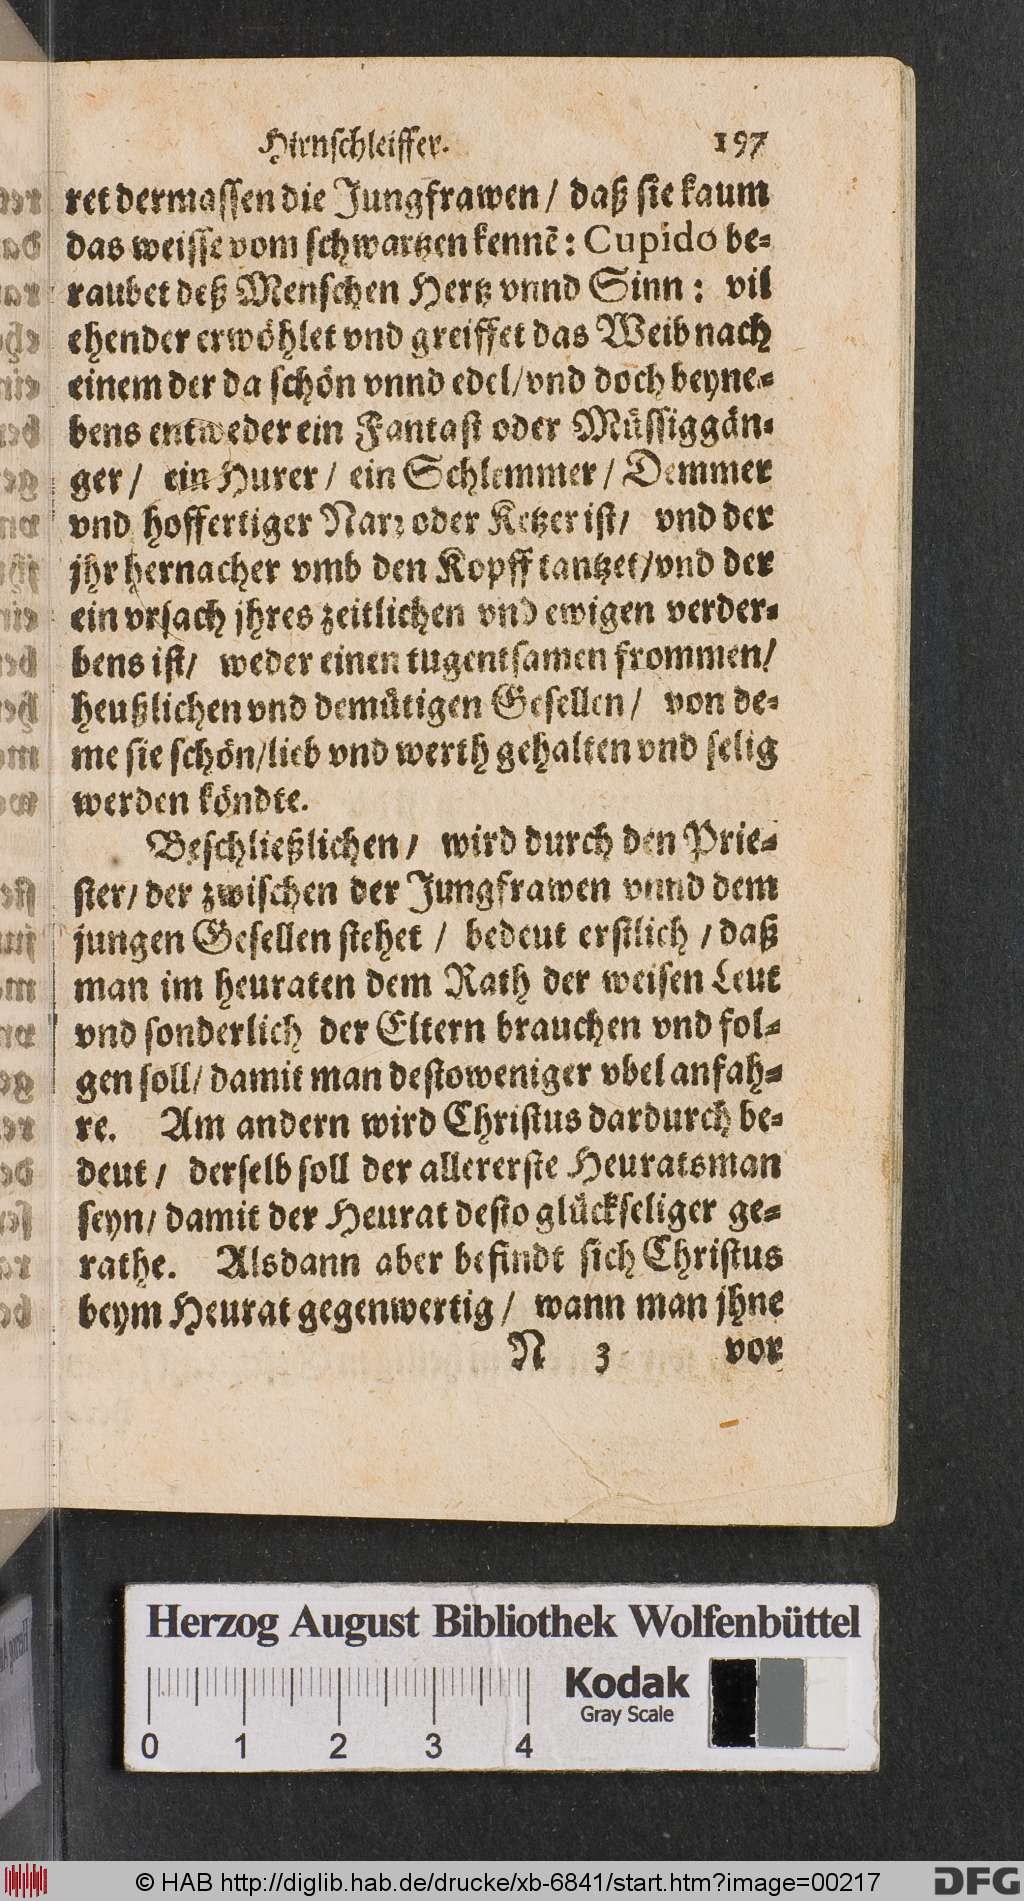 Hirnschleiffer. 197
ret dermassen die Jungfrawen / daß sie kaum
das weisse vom schwartzen kennē : Cupido be-
raubet deß Menschen Hertz vnnd Sinn : vil
ehender erwöhlet vnd greiffet das Weib nach
einem der da schön vnnd edel / vnd doch beyne-
bens entweder ein Fantast oder Müssiggän-
ger / ein Hurer / ein Schlemmer / Demmer
vnd hoffertiger Narꝛ oder Ketzer ist / vnd der
jhr hernacher vmb den Kopff tantzet / vnd der
ein vrsach jhres zeitlichen vnd ewigen verder-
bens ist / weder einen tugentsamen frommen /
heußlichen vnd demütigen Gesellen / von de-
me sie schön / lieb vnd werth gehalten vnd selig
werden köndte.
Beschließlichen / wird durch den Prie-
ster / der zwischen der Jungfrawen vnnd dem
jungen Gesellen stehet / bedeut erstlich / daß
man im heuraten dem Rath der weisen Leut
vnd sonderlich der Eltern brauchen vnd fol-
gen soll / damit man destoweniger vbel anfah-
re. Am andern wird Christus dardurch be-
deut / derselb soll der allererste Heuratsman
seyn / damit der Heurat desto glückseliger ge-
rathe. Alsdann aber befindt sich Christus
beym Heurat gegenwertig / wann man jhne
N 3 vor
Herzog August Bibliothek Wolfenbüttel
0 1 2 3 4
Kodak
Gray Scale
© HAB http://diglib.hab.de/drucke/xb-6841/start.htm?image=00217
DFG